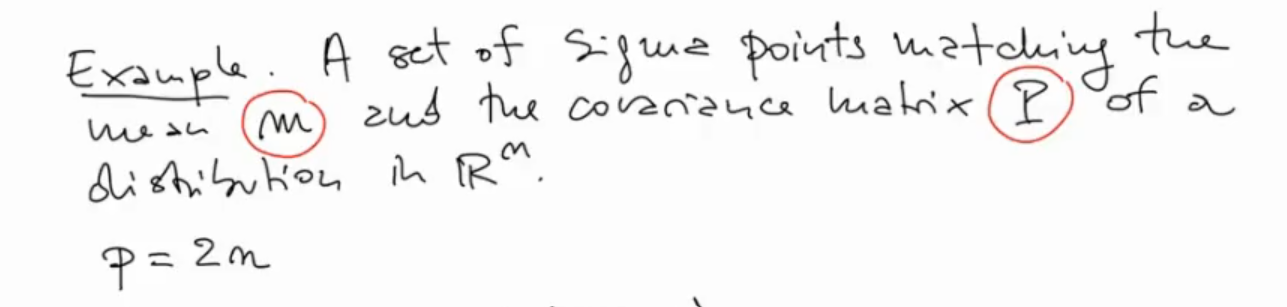 Example. A set of sigma points matching the
mean m and the covariance matrix P of a
distribution in ℝⁿ.
p = 2n